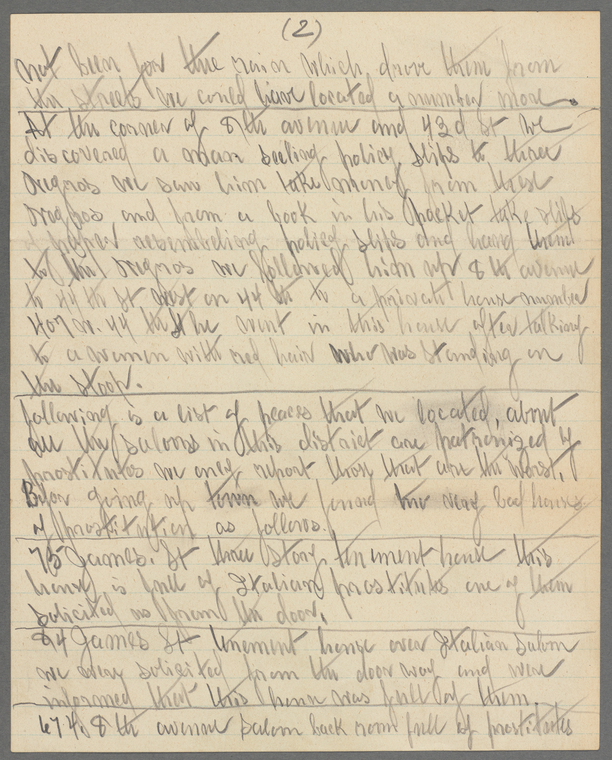 (2)
not been for the rain which drove them from
the streets we could have located a number more.
At the corner of 8th avenue and 43d st we
discovered a man seeling policy slips to three
negros we saw him take money from these
negros and from a book in his pocket take slips
of paper resembeling policy slips and hand them
to the negros we followed him up 8th avenue
to 44th st west on 44 th to a private house number
407 w. 44 th st he went in this house after talking
to a women with red hair who was standing on
the stoop.
following is a list of peaces that we located, about
all the saloons in this district are patronized by
prostitutes we only report those that are the worst,
Befor going up town we found two very bad houses
of prostitution as follows.
75 James. St three story tenement house this
house is full of Italian prostitutes one of them
solicited us from the door.
84 James St tenement house over Italian saloon
we were solicited from the door way and were
informed that this house was full of them.
674. 8th avenue saloon back room full of prostitutes